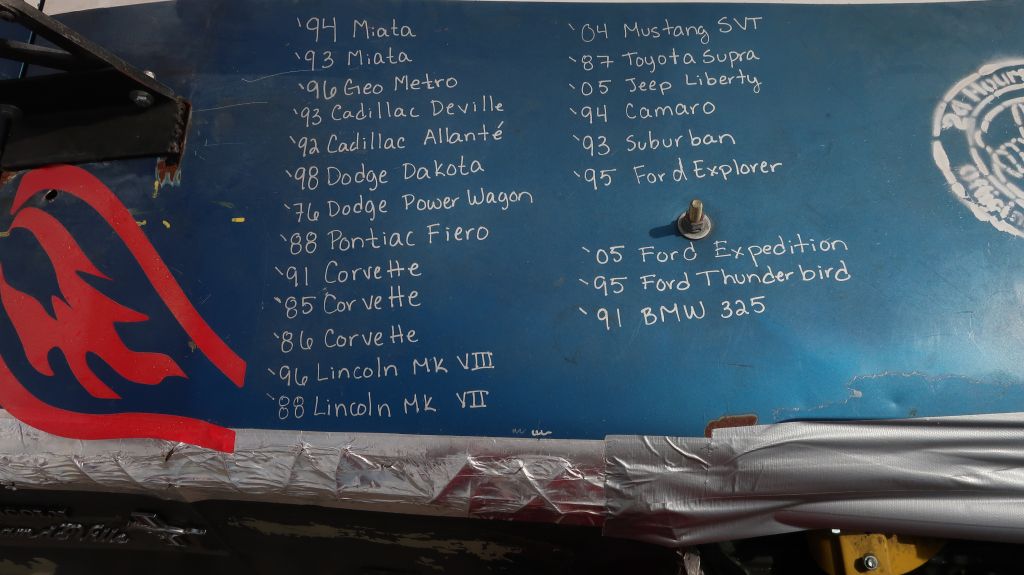 '94 Miata
'93 Miata
'96 Geo Metro
'93 Cadillac Deville
'92 Cadillac Allanté
'98 Dodge Dakota
'76 Dodge Power Wagon
'88 Pontiac Fiero
'91 Corvette
'85 Corvette
'86 Corvette
'96 Lincoln MK VIII
'88 Lincoln MK VII
'04 Mustang SVT
'87 Toyota Supra
'05 Jeep Liberty
'94 Camaro
'93 Suburban
'95 Ford Explorer
'05 Ford Expedition
'95 Ford Thunderbird
'91 BMW 325
24 Hours